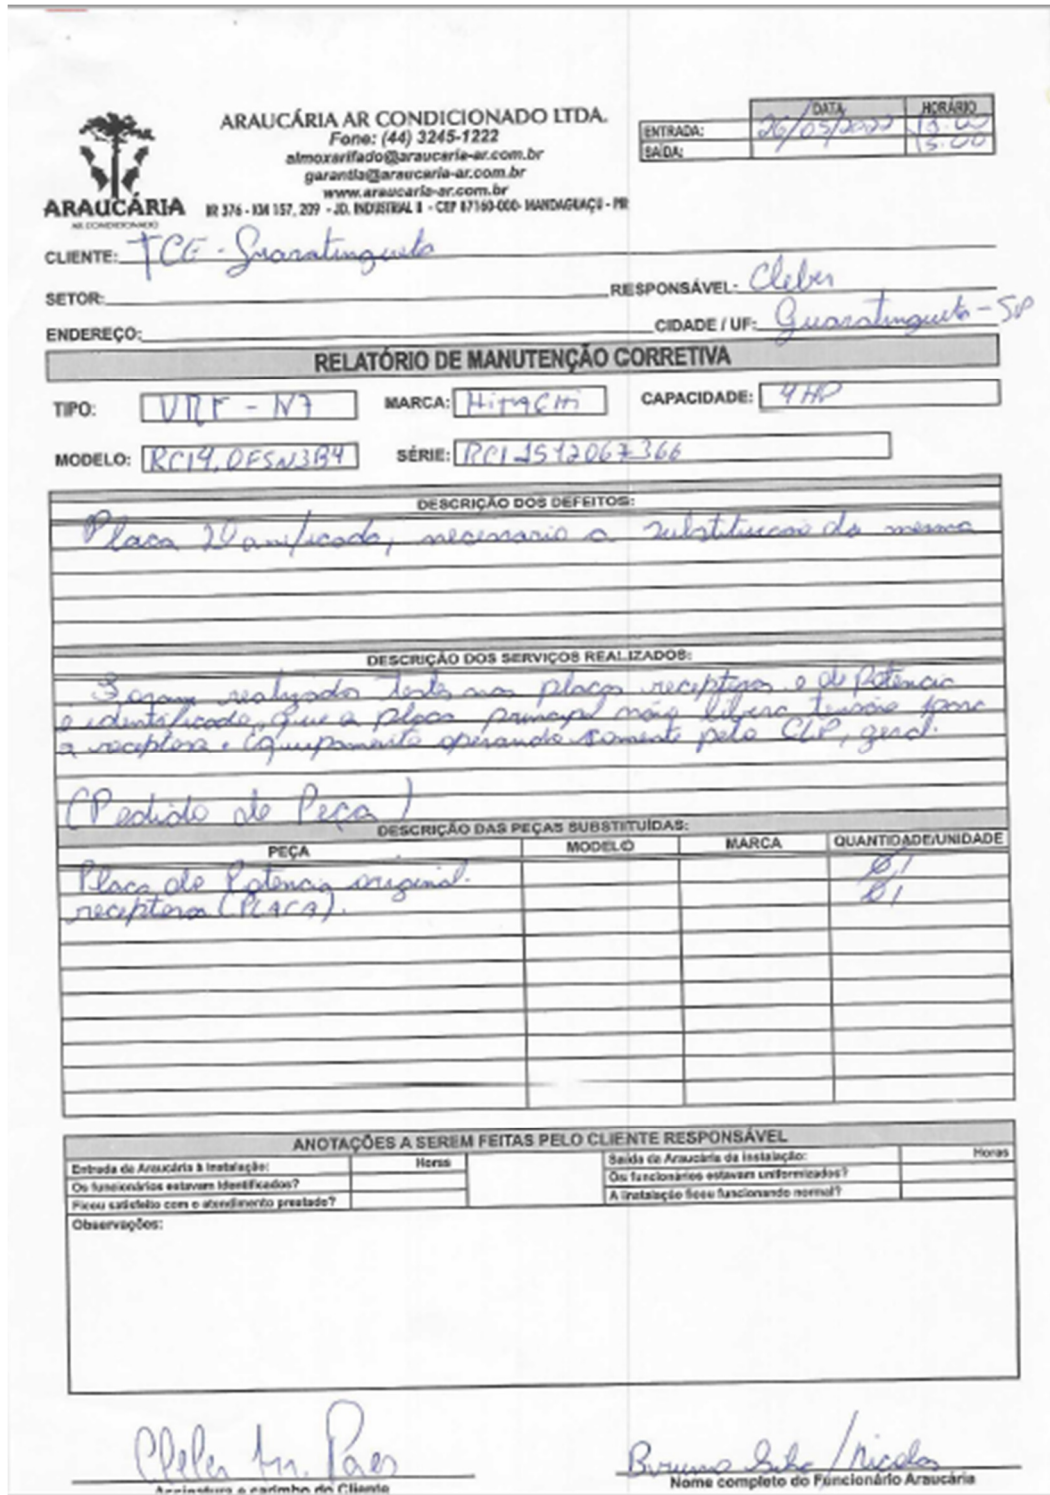 ARAUCÁRIA AR CONDICIONADO LTDA.
Fone: (44) 3245-1222
almoxarifado@araucaria-ar.com.br
garantia@araucaria-ar.com.br
www.araucaria-ar.com.br
BR 376 - KM 157, 209 - JD. INDUSTRIAL II - CEP 87160-000- MANDAGUAÇU - PR
ARAUCÁRIA
AR CONDICIONADO
DATA HORÁRIO
ENTRADA: 26/05/2022
SAÍDA: 15:00
CLIENTE: TCE - Guaratingueta
SETOR: RESPONSÁVEL- Cleber
ENDEREÇO: CIDADE / UF: Guaratingueta - SP
RELATÓRIO DE MANUTENÇÃO CORRETIVA
TIPO: VRF - N7 MARCA: HITACHI CAPACIDADE: 4HP
MODELO: RCI4,0FSN3B4 SÉRIE: RCI1512067366
DESCRIÇÃO DOS DEFEITOS:
Placa Danificada, necessario a substituicao da mesma
DESCRIÇÃO DOS SERVIÇOS REALIZADOS:
Foram realizado testes nas placas receptora e de Potencia
e identificado, que a placa principal não libera tensão para
a receptora. Equipamento operando somente pelo CLP, geral.
(Pedido de Peça)
DESCRIÇÃO DAS PEÇAS SUBSTITUÍDAS:
PEÇA MODELO MARCA QUANTIDADE/UNIDADE
Placa de Potencia original. 01
receptora (PLACA). 01
ANOTAÇÕES A SEREM FEITAS PELO CLIENTE RESPONSÁVEL
Entrada da Araucária à Instalação: Horas Saída da Araucária da Instalação: Horas
Os funcionários estavam identificados? Os funcionários estavam uniformizados?
Ficou satisfeito com o atendimento prestado? A instalação ficou funcionando normal?
Observações:
Paes Bruno Silva / Nicolas
Assinatura e carimbo do Cliente Nome completo do Funcionário Araucária